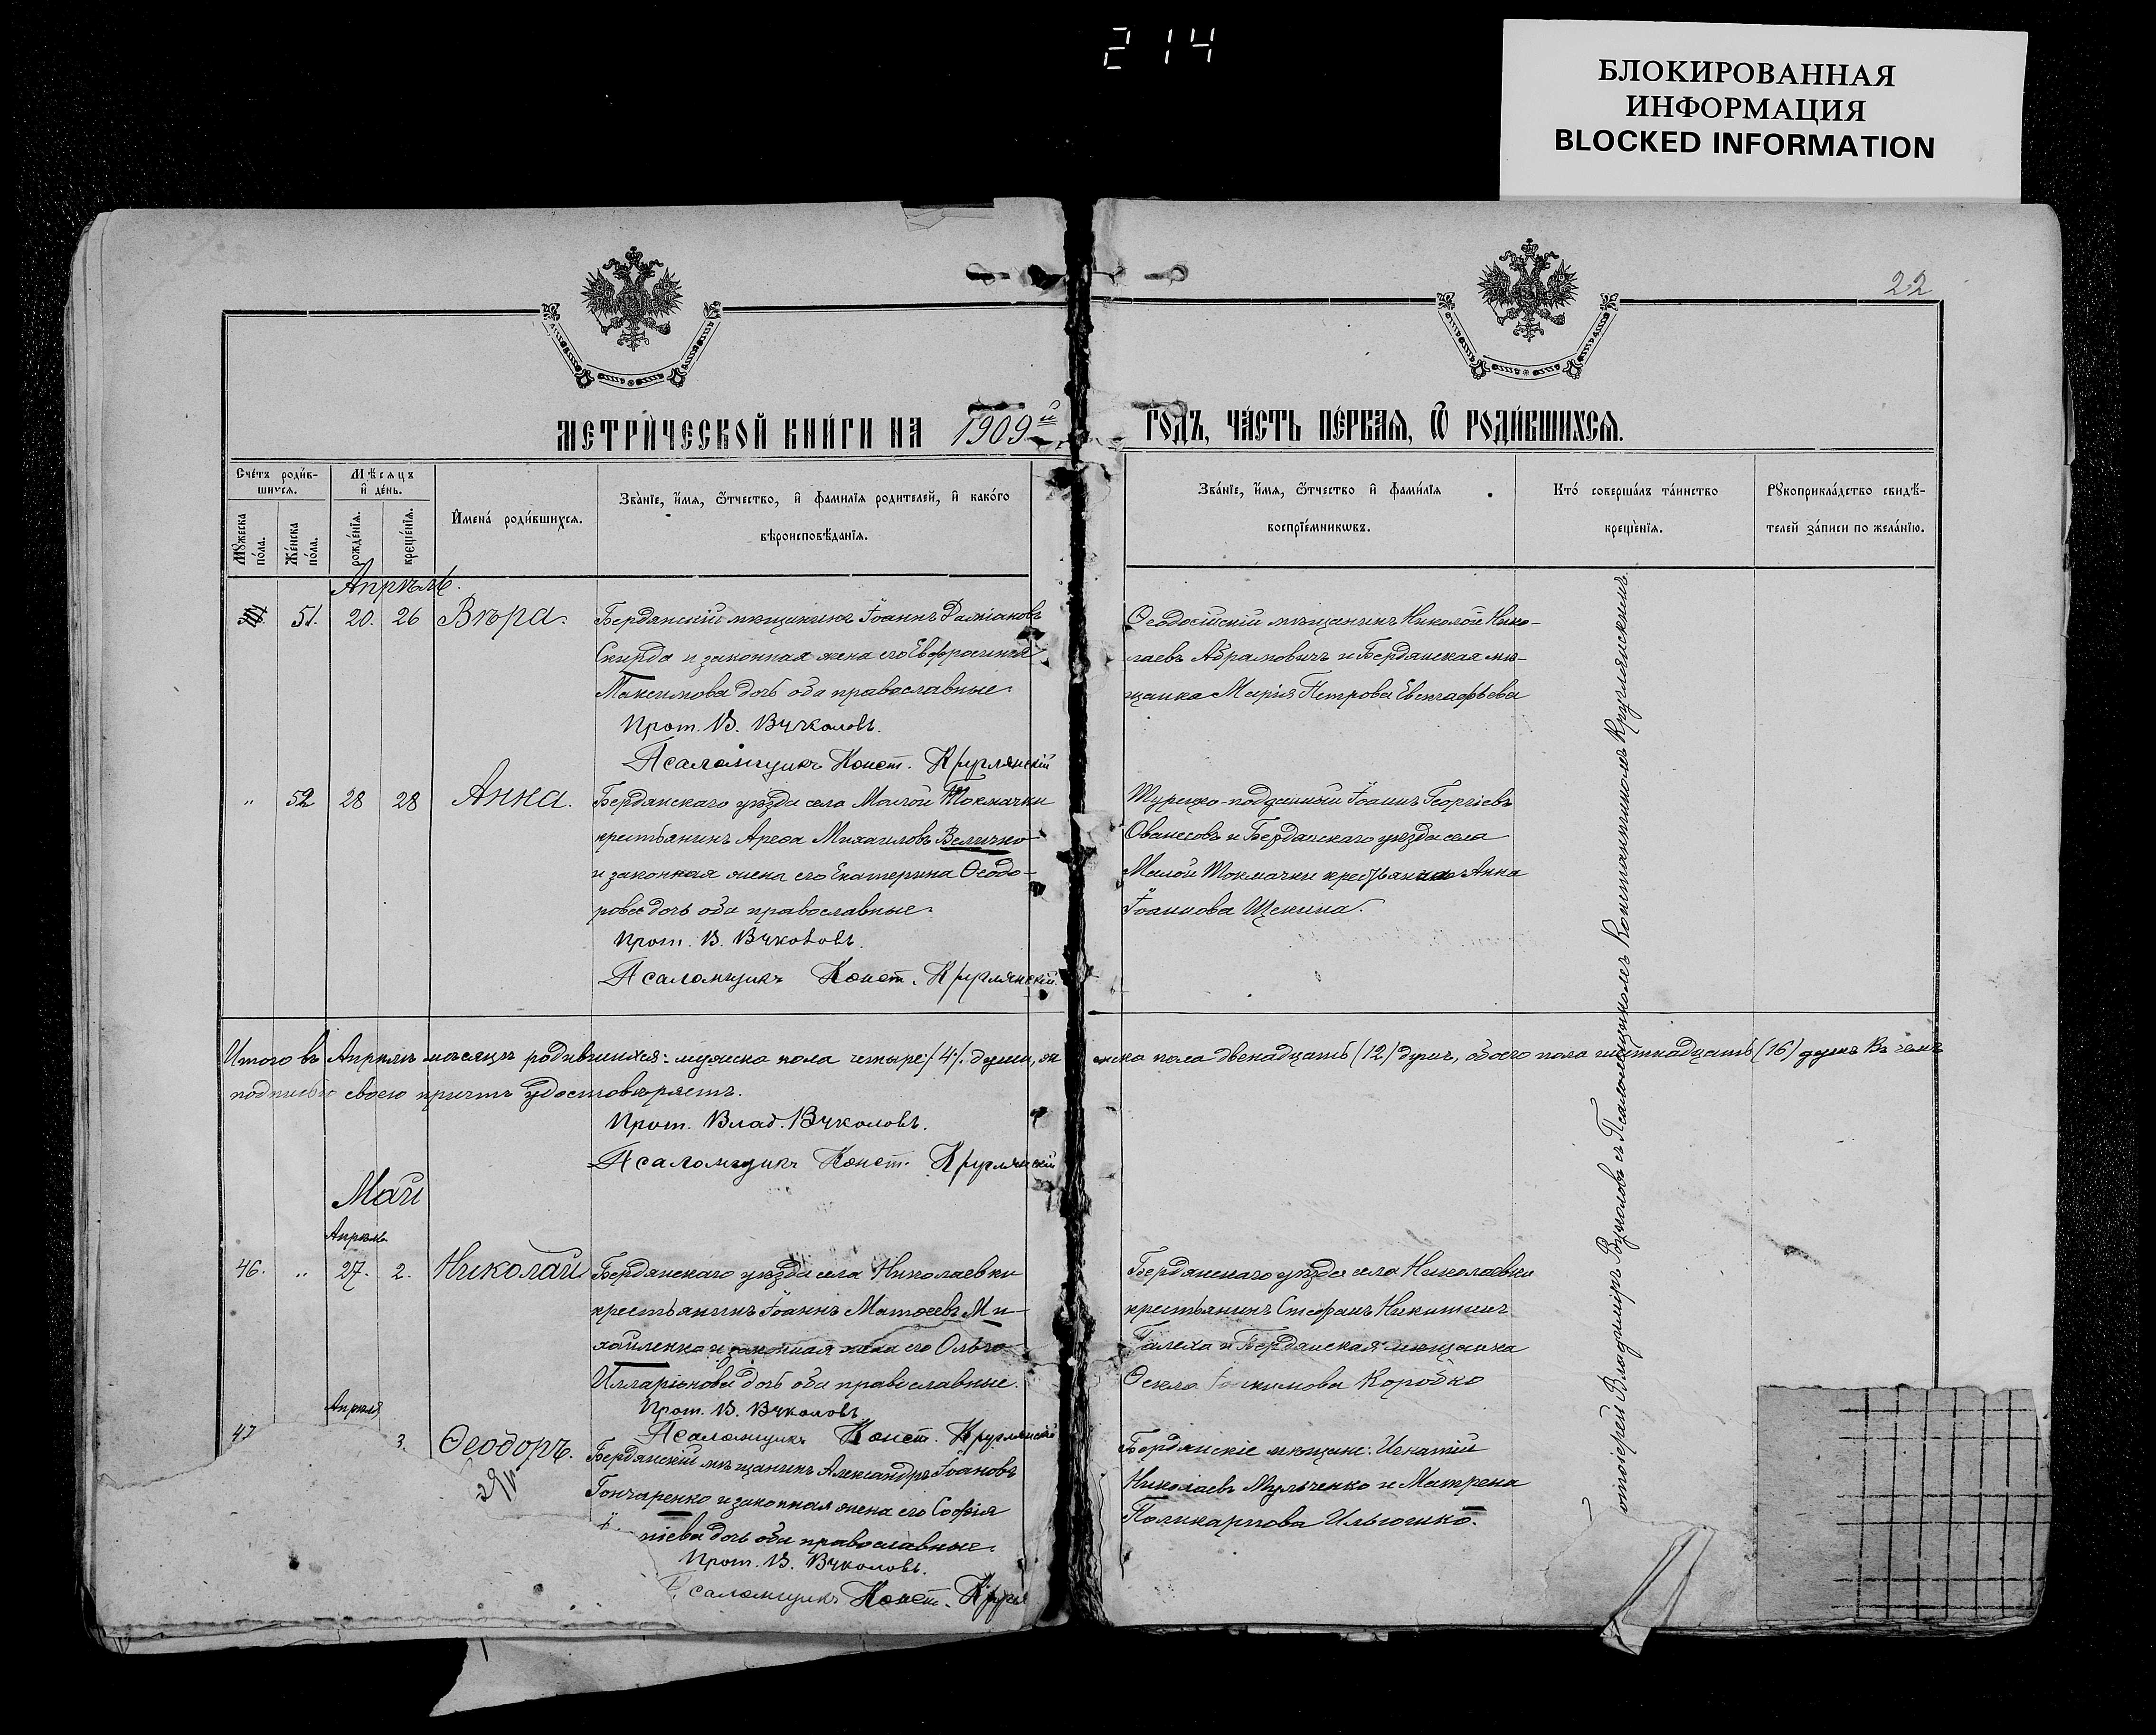 214
БЛОКИРОВАННАЯ
ИНФОРМАЦИЯ
BLOCKED INFORMATION
22
МЕТРИ́ЧЕСКОЙ КНИ́ГИ НА 1909й
ГОДЪ, ЧА́СТЬ ПЕ́РВАЯ, Ѿ РОДИ́ВШИХСЯ.
Сче́тъ роди́в-
шихся.
Мꙋжеска по́ла.
Же́нска по́ла.
Мѣ́сяцъ
и҆ де́нь.
рожде́нїя.
креще́нїя.
И҆мена́ роди́вшихся.
Зва́нїе, и҆́мя, ѻ҆́тчество, и҆ фами́лїя роди́телей, и҆ како́го
вѣроисповѣ́данїя.
Зва́нїе, и҆́мя, ѻ҆́тчество и҆ фами́лїя
воспрїе́мникѡвъ.
Кто́ соверша́лъ та́инство
креще́нїя.
Рꙋкоприкла́дство свидѣ́-
телей за́писи по жела́нїю.
Апрѣль.
51. 20. 26 Вѣра.
Бердянскій мѣщанинъ Іоаннъ Даміановъ
Скирда и законная жена его Евфросинія
Максимова дочь оба православные.
Прот. В. Вучколовъ.
Псаломщикъ Конст. Круглянскій
Ѳеодосійскій мѣщанинъ Николай Нико-
лаевъ Абрамовичъ и Бердянская мѣ-
щанка Марія Петрова
" 52 28 28 Анна.
Бердянскаго уѣзда села Малой Токмачки
крестьянинъ Ареѳа Михаиловъ Величко
и законная жена его Екатерина Ѳеодо-
рова дочь оба православные.
Прот. В. Вучколовъ.
Псаломщикъ Конст. Круглянскій.
Турецко-подданный Іоаннъ Георгіевъ
Ованесовъ и Бердянскаго уѣзда села
Малой Токмачки крестьянка Анна
Іоаннова Щекина.
Итого въ Апрѣлѣ мѣсяцѣ родившихся: мужеска пола четыре /4/ души, женска пола двенадцать (12) душъ, обоего пола шестнадцать (16) душъ. Въ чемъ
подписью своею причтъ удостовѣряетъ.
Прот. Влад. Вучколовъ.
Псаломщикъ Конст. Круглянскій
Май
Апрѣль
46. " 27. 2. Николай
Бердянскаго уѣзда села Николаевки
крестьянинъ Іоаннъ Матѳеевъ Ми-
хайленко и законная жена его Ольга
Илларіонова дочь оба православные.
Прот. В. Вучколовъ
Псаломщикъ Конст. Круглянскій
Бердянскаго уѣзда села Николаевки
крестьянинъ Стефанъ Никитинъ
Галеха и Бердянская мѣщанка
Ѳекла Іоакимова Коробко
Апрѣля
47 3. Ѳеодоръ.
Бердянскій мѣщанинъ Александръ Іоановъ
Гончаренко и законная жена его Софія
ніева дочь оба православные.
Прот. В. Вучколовъ.
Псаломщикъ Конст. Кругл
Бердянскіе мѣщане: Игнатій
Николаевъ Мульченко и Матрена
Поликарпова Ильюшко.
Владиміръ Вучколовъ съ Псаломщикомъ Константиномъ Круглянскимъ.